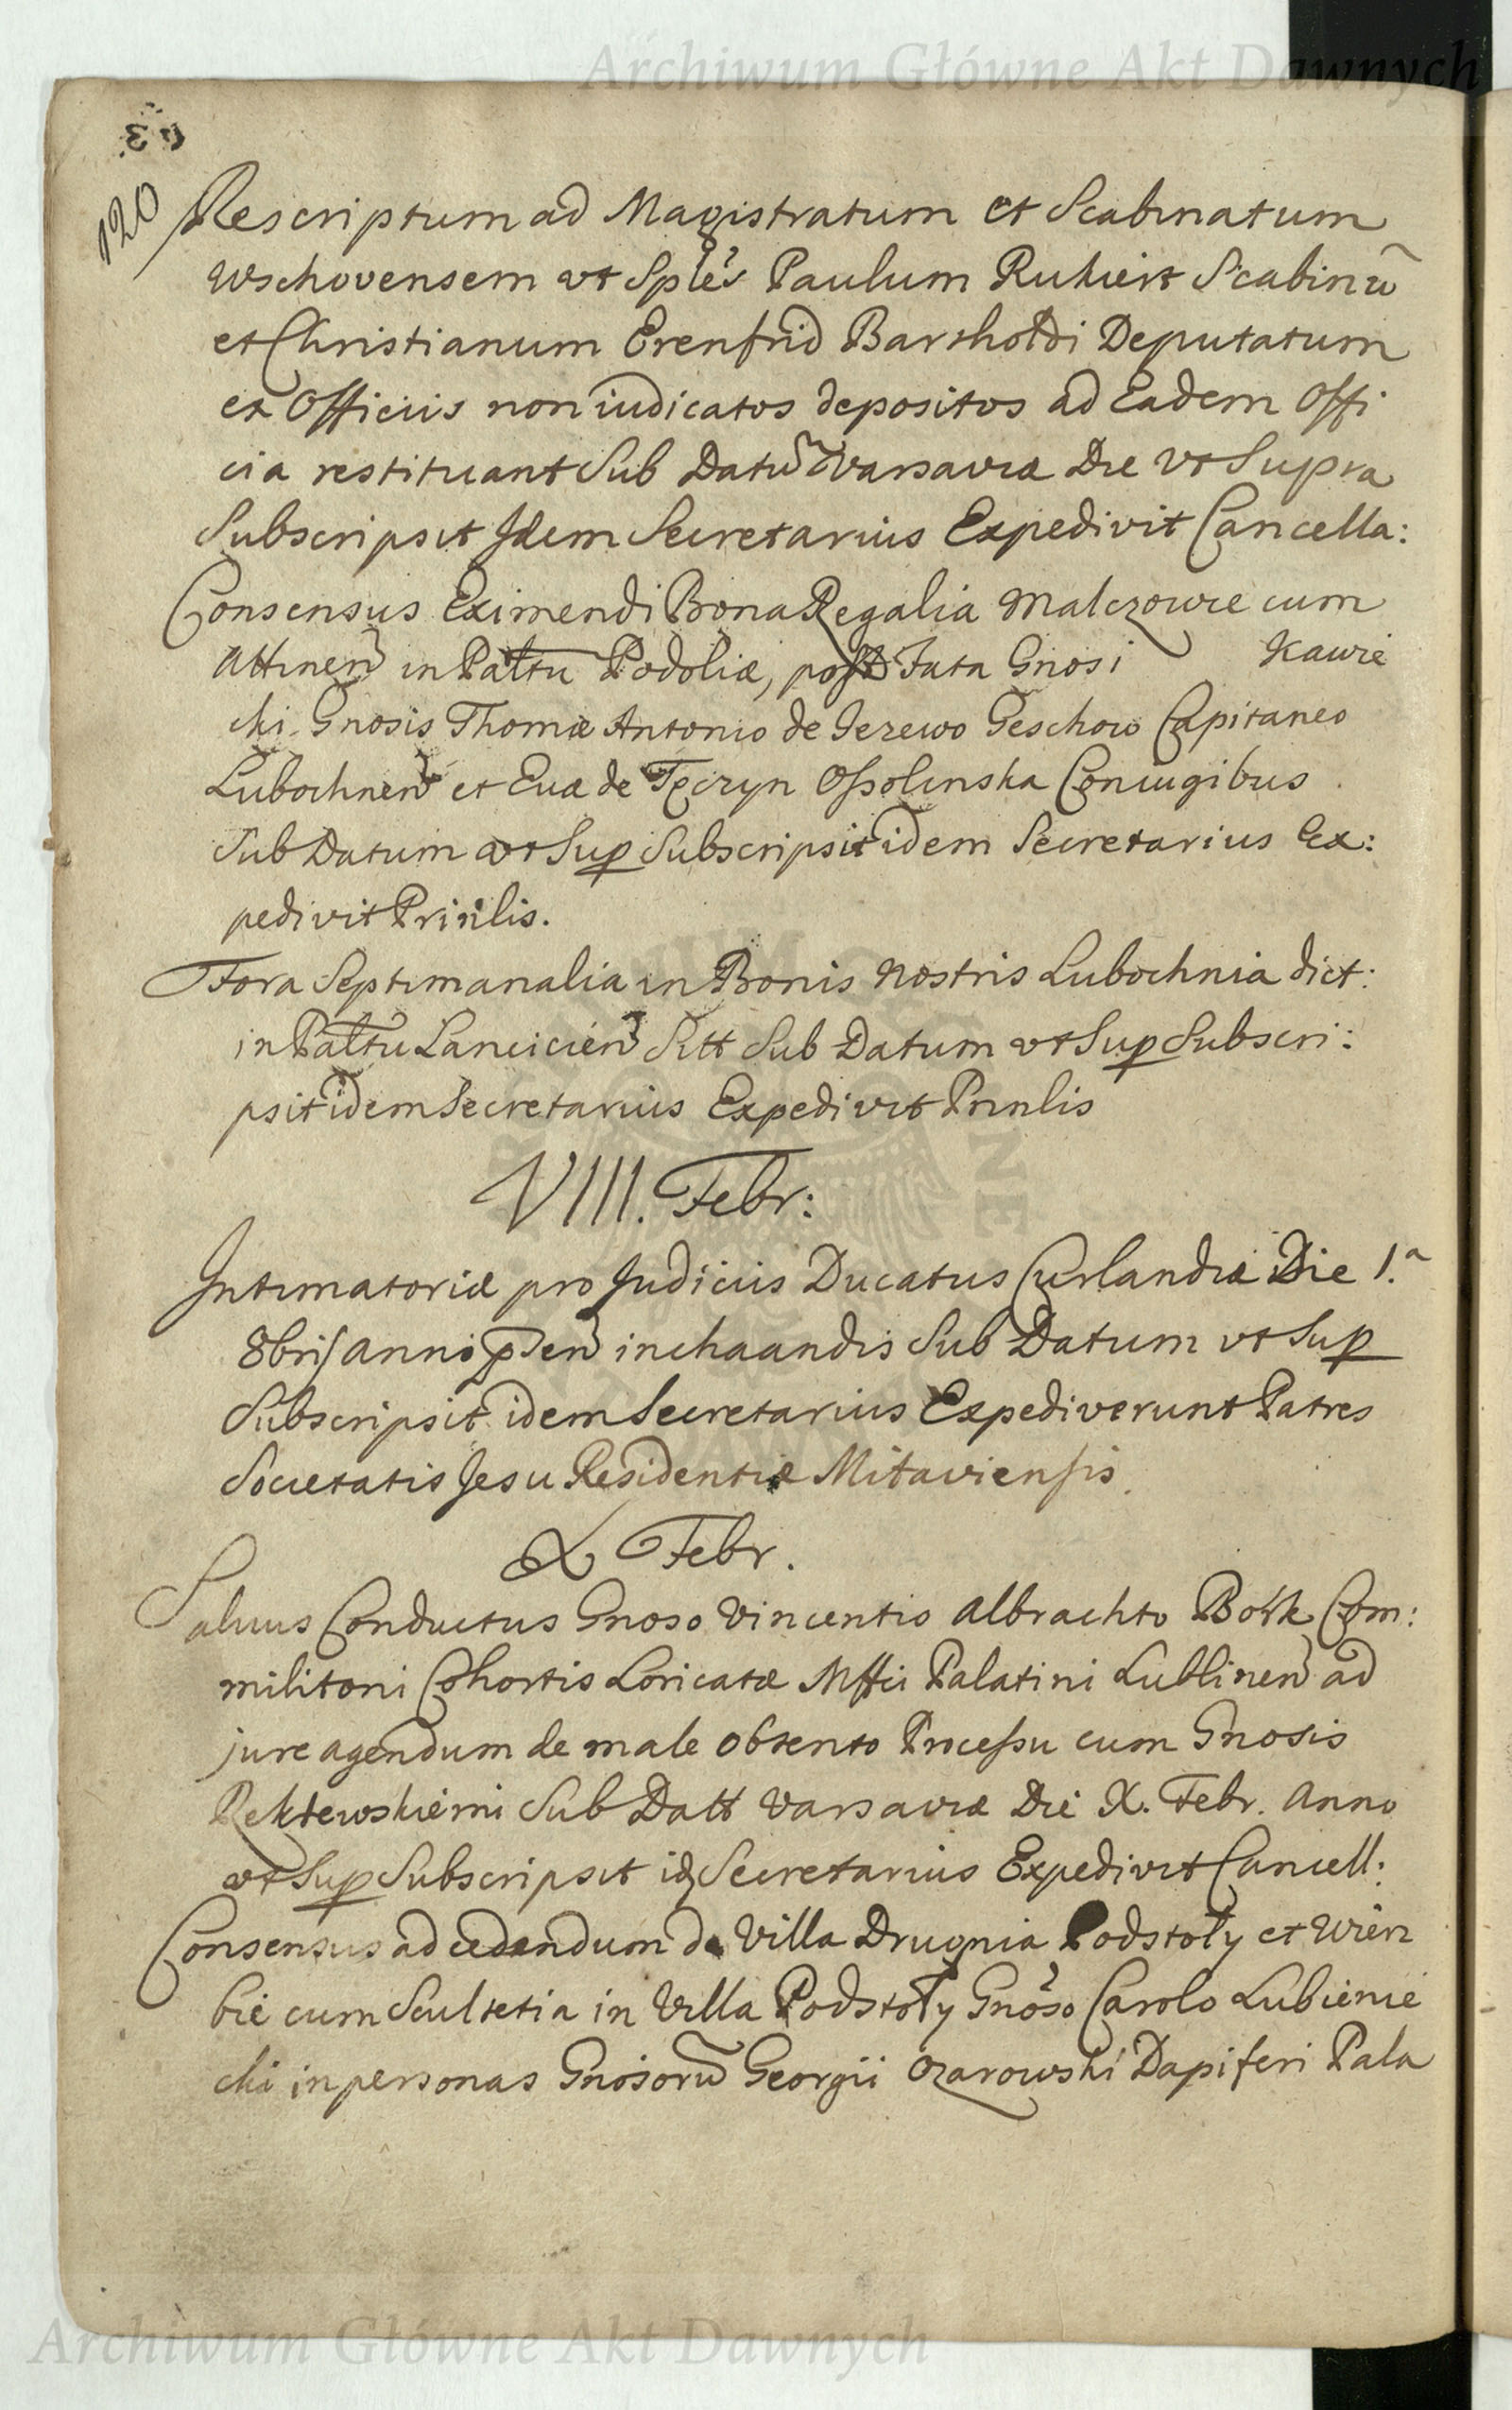 Archiwum Główne Akt Dawnych
120
Rescriptum ad Magistratum et Scabinatum
Wschovensem vt Sples Paulum Ruhiert Scabinu
et Christianum Erenfrid Bartholdi Deputatum
ex Officiis non iudicatos depositos ad Eadem Offi
cia restituant Sub Datu Varsaviæ Die vt Supra
Subscripsit Idem Secretarius Expedivit Cancella:
Consensus Eximendi Bona Regalia Malczowce cum
Attinen in Paltu Podoliæ, post Fata Gnosi Kawie
cki Gnosis Thomæ Antonio de Jezewo Geschow Capitaneo
Lubochnen et Evæ de Tęczyn Ossolinska Coniugibus
Sub Datum vt Sup Subscripsit idem Secretarius Ex:
pedivit Prinlis.
Fora Septimanalia in Bonis Nostris Lubochnia dict:
in Paltu Lancicien Sitt Sub Datum vt Sup Subscri:
psit idem Secretarius Expedivit Prinlis
VIII. Febr:
Intimatoriæ pro Judiciis Ducatus Curlandiæ Die 1.a
8bris anni pden inchaandis Sub Datum vt Sup
Subscripsit idem Secretarius Expediverunt Patres
Societatis Jesu Residentiæ Mitaviensis.
X Febr.
Salvus Conductus Gnoso Vincentio Albrachto Bork Com:
militoni Cohortis Loricatæ Mffci Palatini Lublinen ad
jure agendum de male obtento Processu cum Gnosis
Rektewskiemi Sub Datt Varsaviæ Die X. Febr. Anno
vt Sup Subscripsit id Secretarius Expedivit Cancell:
Consensus ad cedendum de Villa Drugnia Podstoły et Wierz
bie cum Scultetia in Villa Podstoły Gnoso Carolo Lubienie
cki in personas Gnosoru Georgii Ozarowski Dapiferi Pala
Archiwum Główne Akt Dawnych